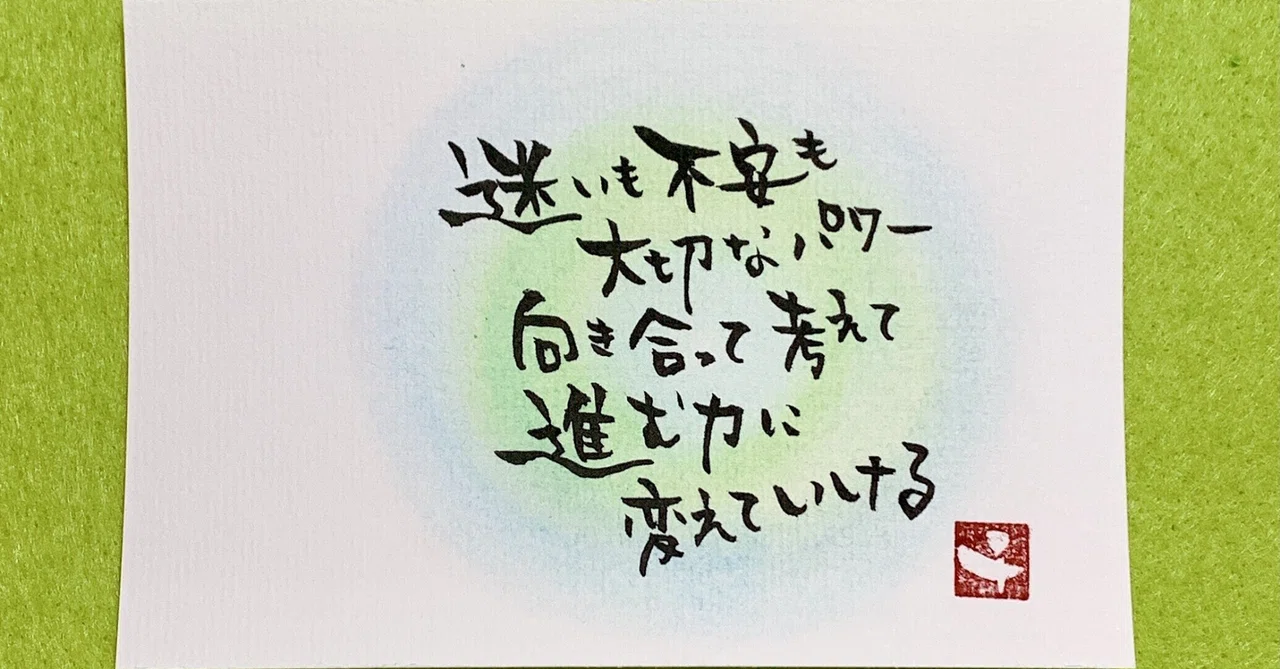 迷いも不安も
大切なパワー
向き合って考えて
進む力に
変えていける